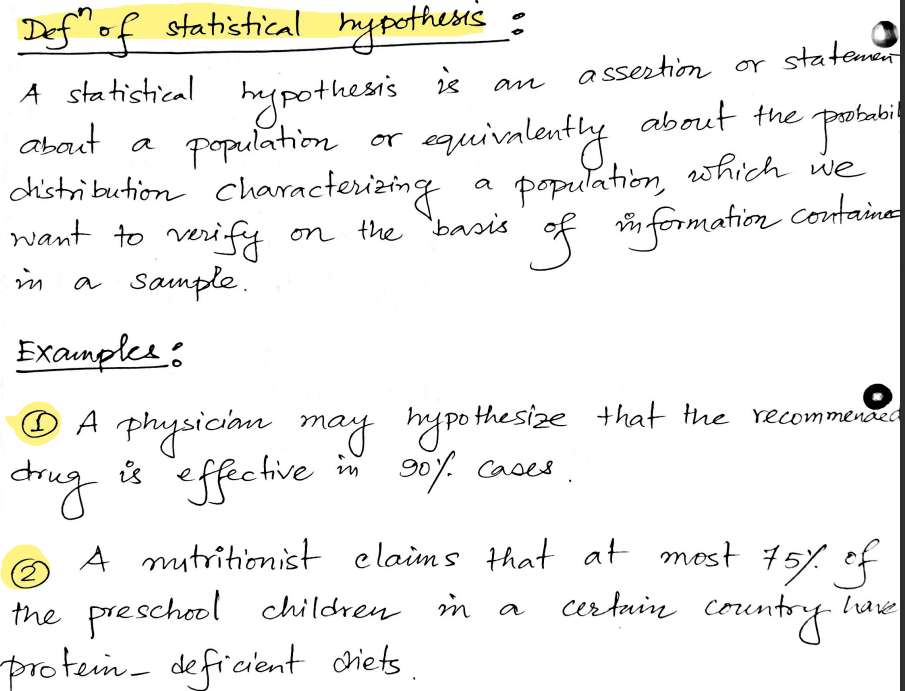 Defⁿ of statistical hypothesis :
A statistical hypothesis is an assertion or statemen
about a population or equivalently about the probabil
distribution characterizing a population, which we
want to verify on the basis of information containe
in a sample.
Examples :
① A physician may hypothesize that the recommended
drug is effective in 90% cases.
② A nutritionist claims that at most 75% of
the preschool children in a certain country have
protein-deficient diets.